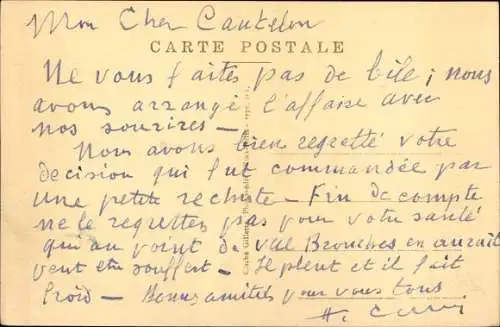 Mon Cher Cautelon
CARTE POSTALE
Ne vous faites pas de bile ; nous
avons arrangé l'affaire avec
nos sourires —
Nous avons bien regretté votre
décision qui fut commandée par
une petite rechute — Fin de compte
ne le regrettez pas pour votre santé
qui au point de vue Bronches en aurait
peut être souffert — Il pleut et il fait
froid — Bonnes amitiés pour vous tous
H.